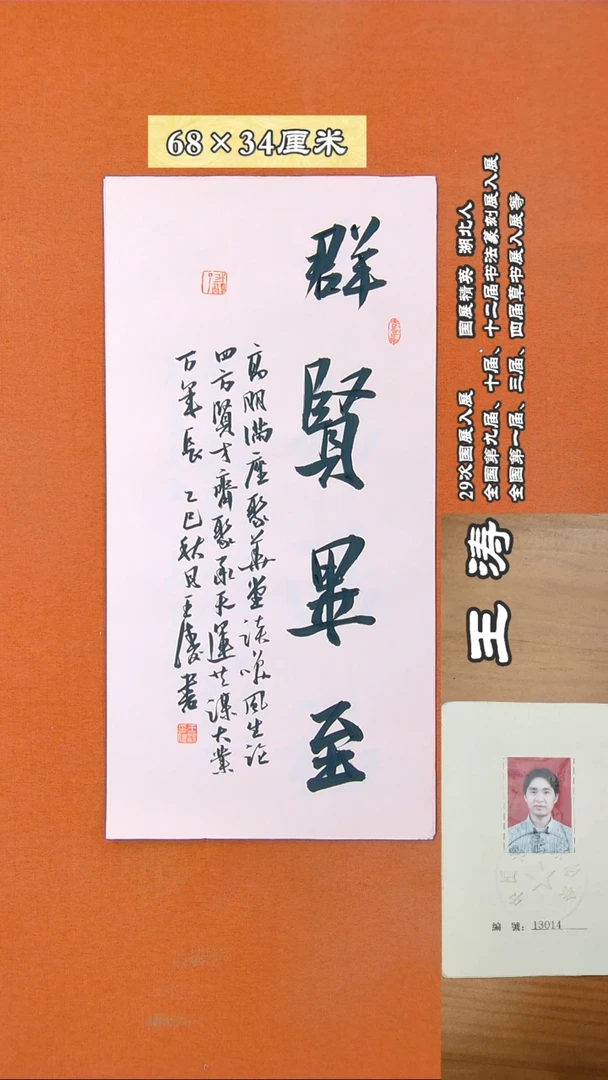 68×34厘米
群賢畢至
高朋滿座聚華堂談笑风生论
四方賢才齊聚承天運共謀大業
百年長 乙巳秋月王涛書
29次国展入展 国展精英 湖北人
全国第九届、十届、十二届书法篆刻展入展
全国第一届、三届、四届草书展入展等
王涛
編 號：13014